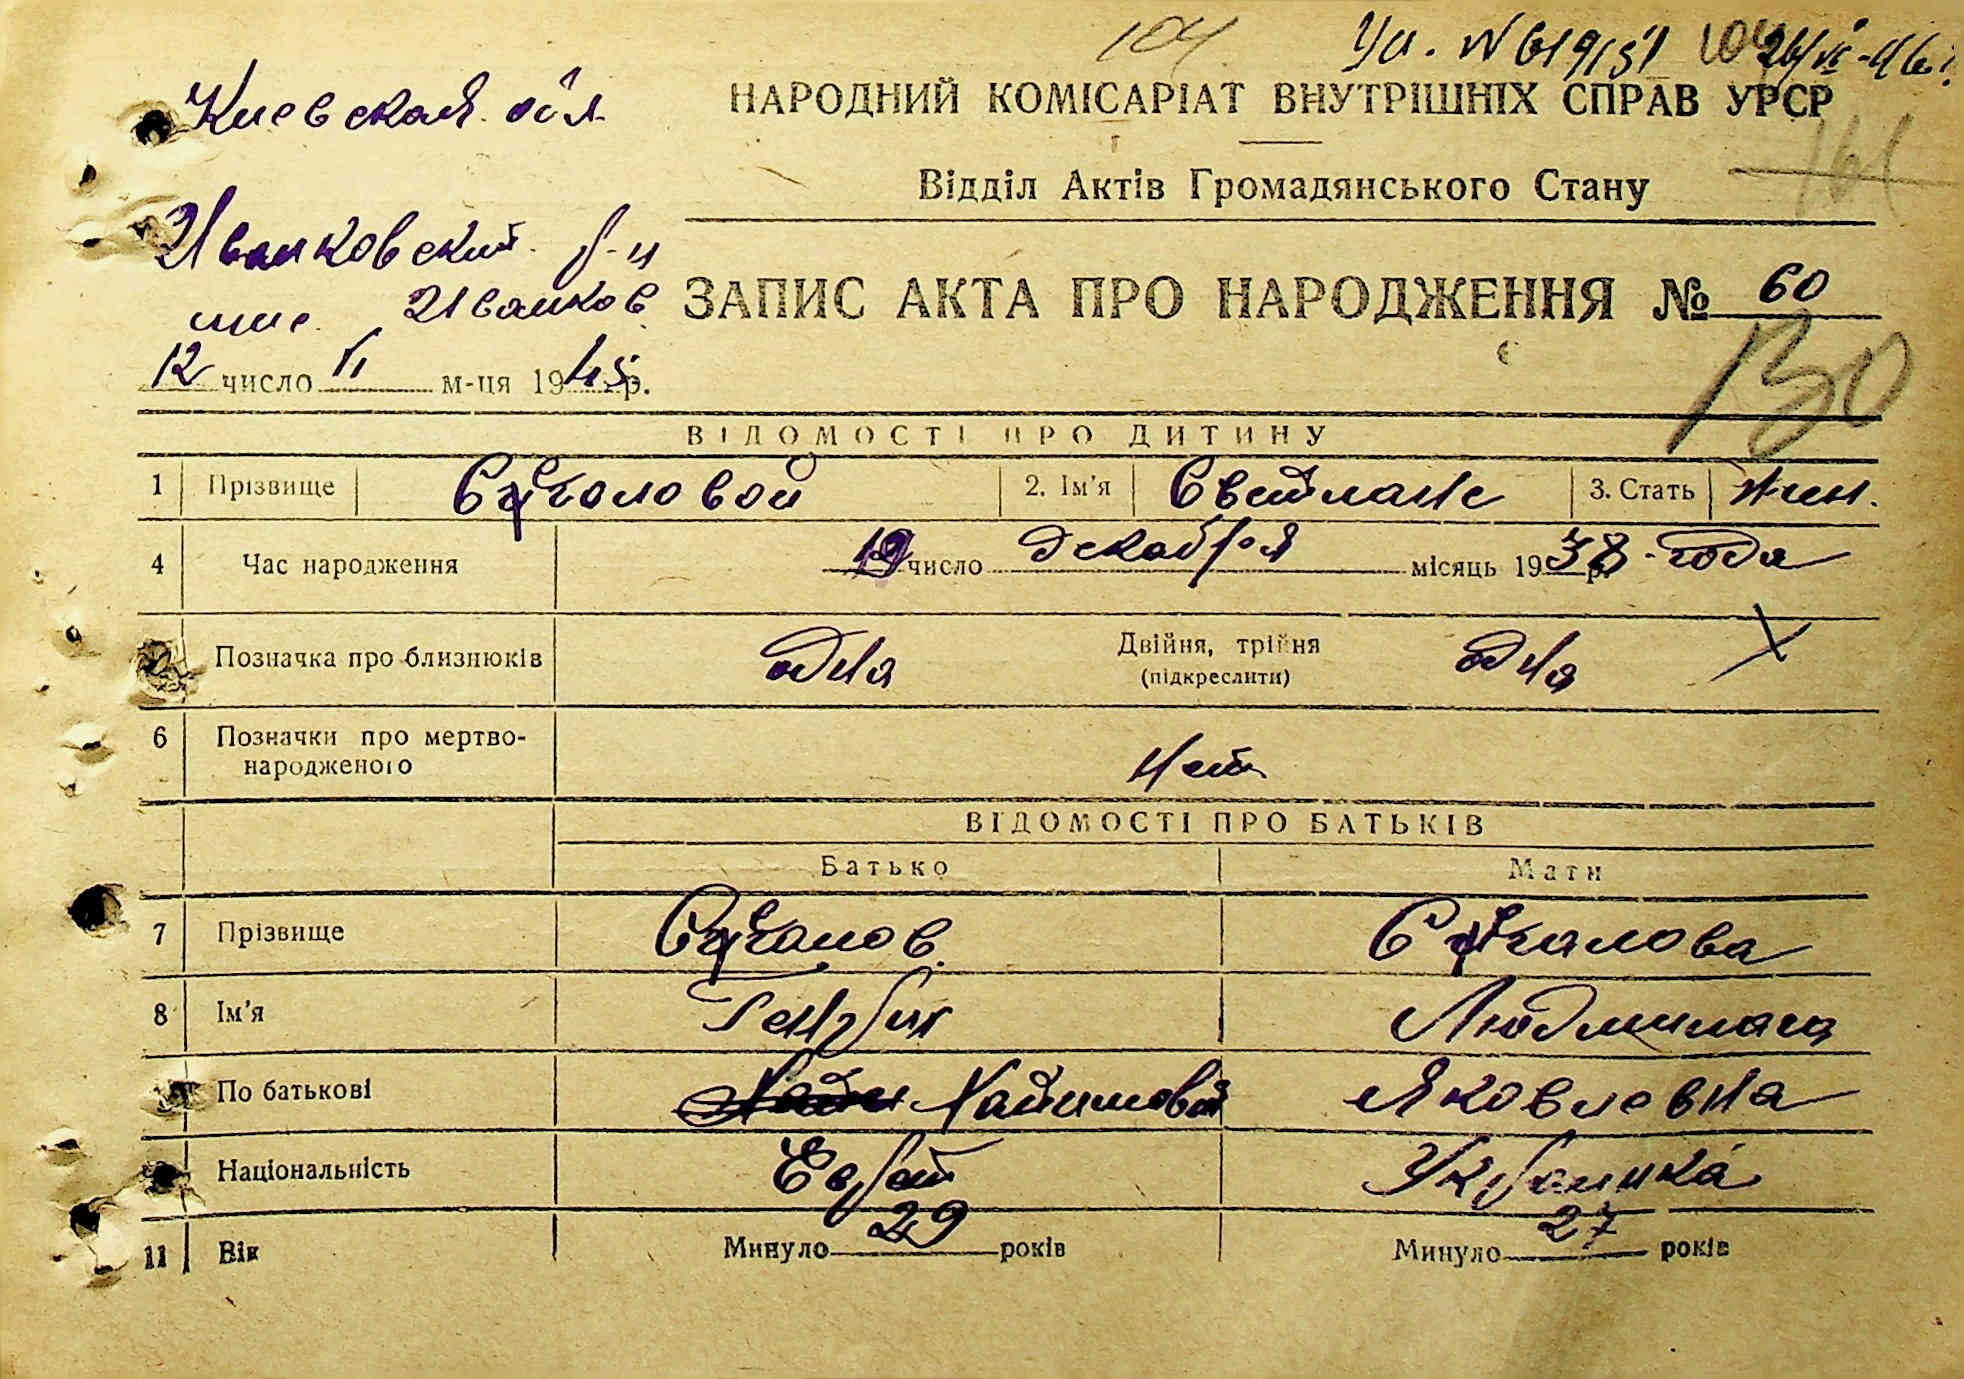 104
Ул. N 619/51 104 24/VI-46г.
Киевская обл
НАРОДНИЙ КОМІСАРІАТ ВНУТРІШНІХ СПРАВ УРСР
161
Відділ Актів Громадянського Стану
Иванковский р-н
Иванков
ЗАПИС АКТА ПРО НАРОДЖЕННЯ № 60
12 число II м-ця 1945 р.
130
ВІДОМОСТІ ПРО ДИТИНУ
1 Прізвище 2. Ім'я Светлане 3. Стать жен.
4 Час народження 19 число декабря місяць 1938 р. года
Позначка про близнюків одна Двійня, трійня (підкреслити) одна
6 Позначки про мертвонародженого Нет
ВІДОМОСТІ ПРО БАТЬКІВ
Батько Мати
7 Прізвище
8 Ім'я Генрих Людмила
По батькові Яковлевна
Національність Еврей Украинка
11 Вік Минуло 29 років Минуло 27 років